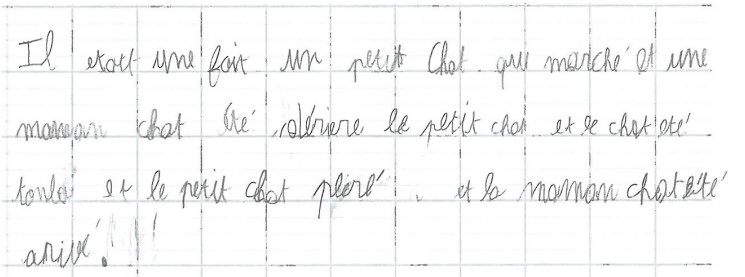 Il etait une foit un petit chat qui marché et une
maman chat été dériere le petit chat et le chat eté
tonbé et le petit chat pleré . et la maman chat été
arivé.